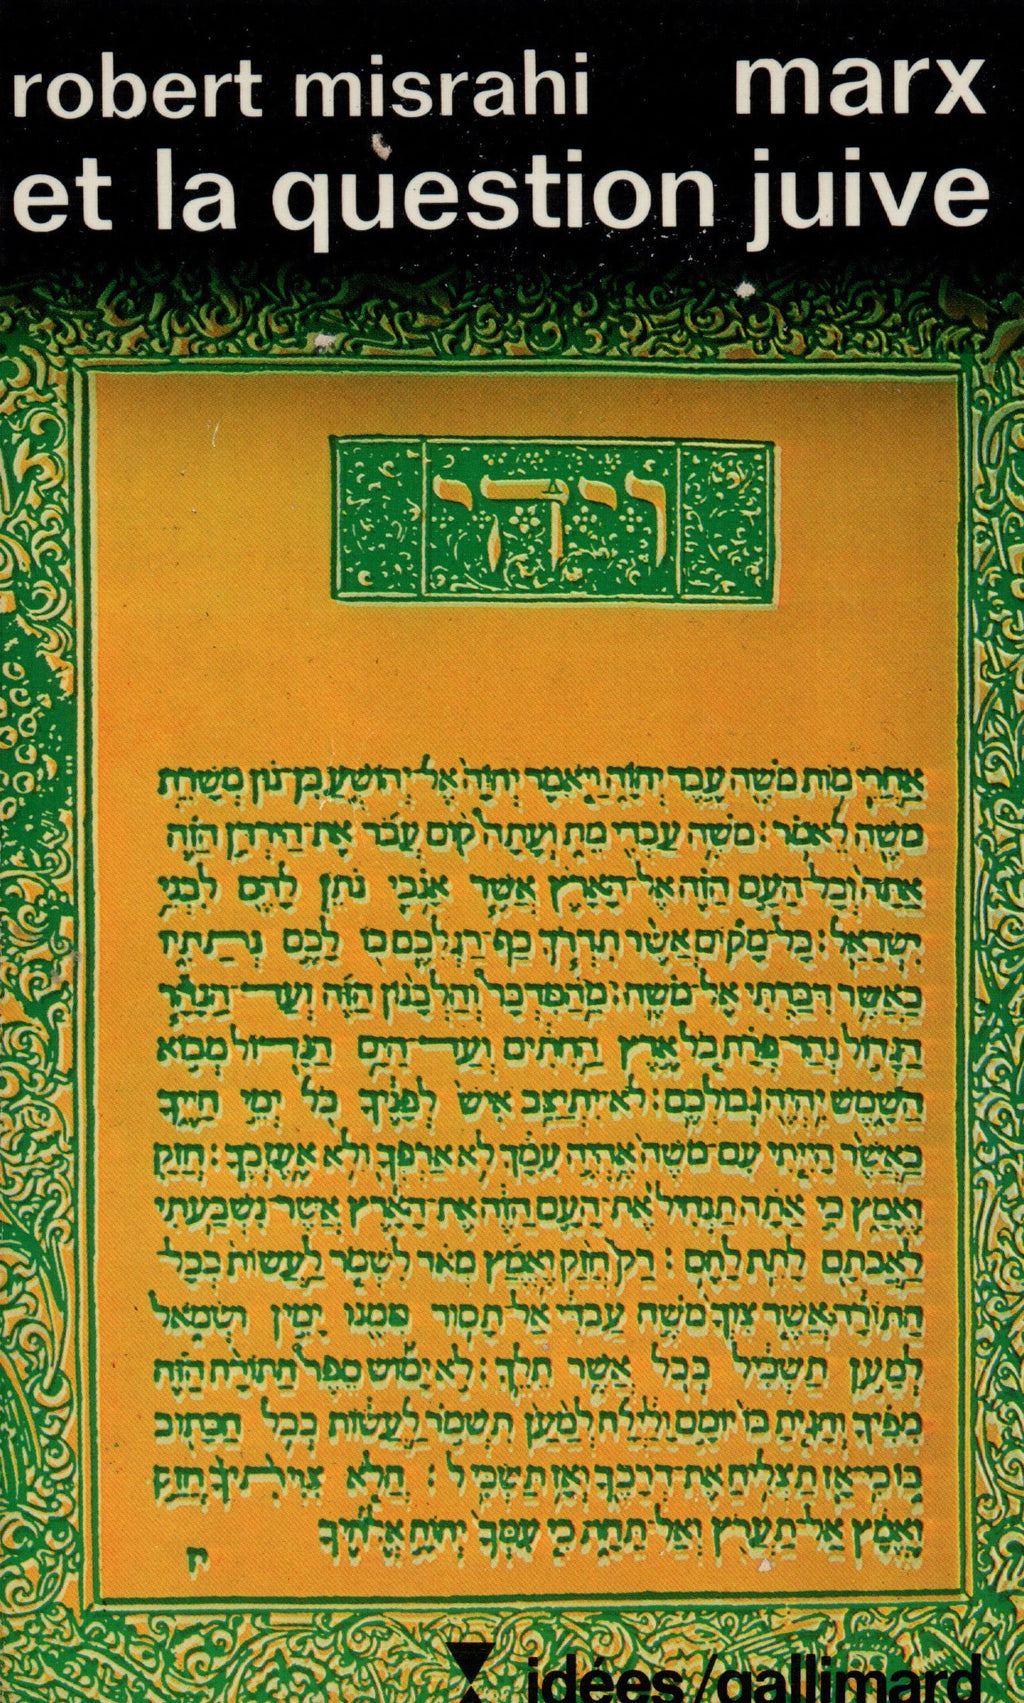 robert misrahi marx
et la question juive
ויהי
אחרי מות משה עבד יהוה ויאמר יהוה אל יהושע בן נון משרת
משה לאמר : משה עבדי מת ועתה קום עבר את הירדן הזה
אתה וכל העם הזה אל הארץ אשר אנכי נתן להם לבני
ישראל : כל מקום אשר תדרך כף רגלכם בו לכם נתתיו
כאשר דברתי אל משה : מהמדבר והלבנון הזה ועד הנהר
הגדול נהר פרת כל ארץ החתים ועד הים הגדול מבוא
השמש יהיה גבולכם : לא יתיצב איש לפניך כל ימי חייך
כאשר הייתי עם משה אהיה עמך לא ארפך ולא אעזבך : חזק
ואמץ כי אתה תנחיל את העם הזה את הארץ אשר נשבעתי
לאבתם לתת להם : רק חזק ואמץ מאד לשמר לעשות ככל
התורה אשר צוך משה עבדי אל תסור ממנו ימין ושמאל
למען תשכיל בכל אשר תלך : לא ימוש ספר התורה הזה
מפיך והגית בו יומם ולילה למען תשמר לעשות ככל הכתוב
בו כי אז תצליח את דרכך ואז תשכיל : הלא צויתיך חזק
ואמץ אל תערץ ואל תחת כי עמך יהוה אלהיך
idées/gallimard